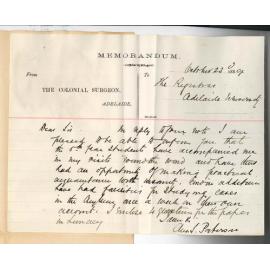 MEMORANDUM.
October 23rd 1889
From
To
THE COLONIAL SURGEON,
The Registrar
ADELAIDE.
Adelaide University
Dear Sir
In reply to your note I am
pleased to be able to inform you that
the 5th year students have accompanied me
in my visits round the ward and have thus
had an opportunity of making practical
acquaintance with insanity. and in addition
have had facilities for studying cases
in the Asylum once a week on their own
account. I enclose 4 questions for the paper
in Lunacy
I am &c